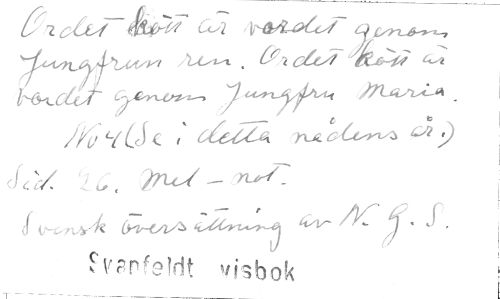 Ordet kött är vordet genom
Jungfrun ren. Ordet kött är
vordet genom Jungfru Maria.
No 4 (Se i detta nådens år.)
Sid. 26. Mel-not.
Svensk översättning av N. G. S.
Svanfeldt visbok